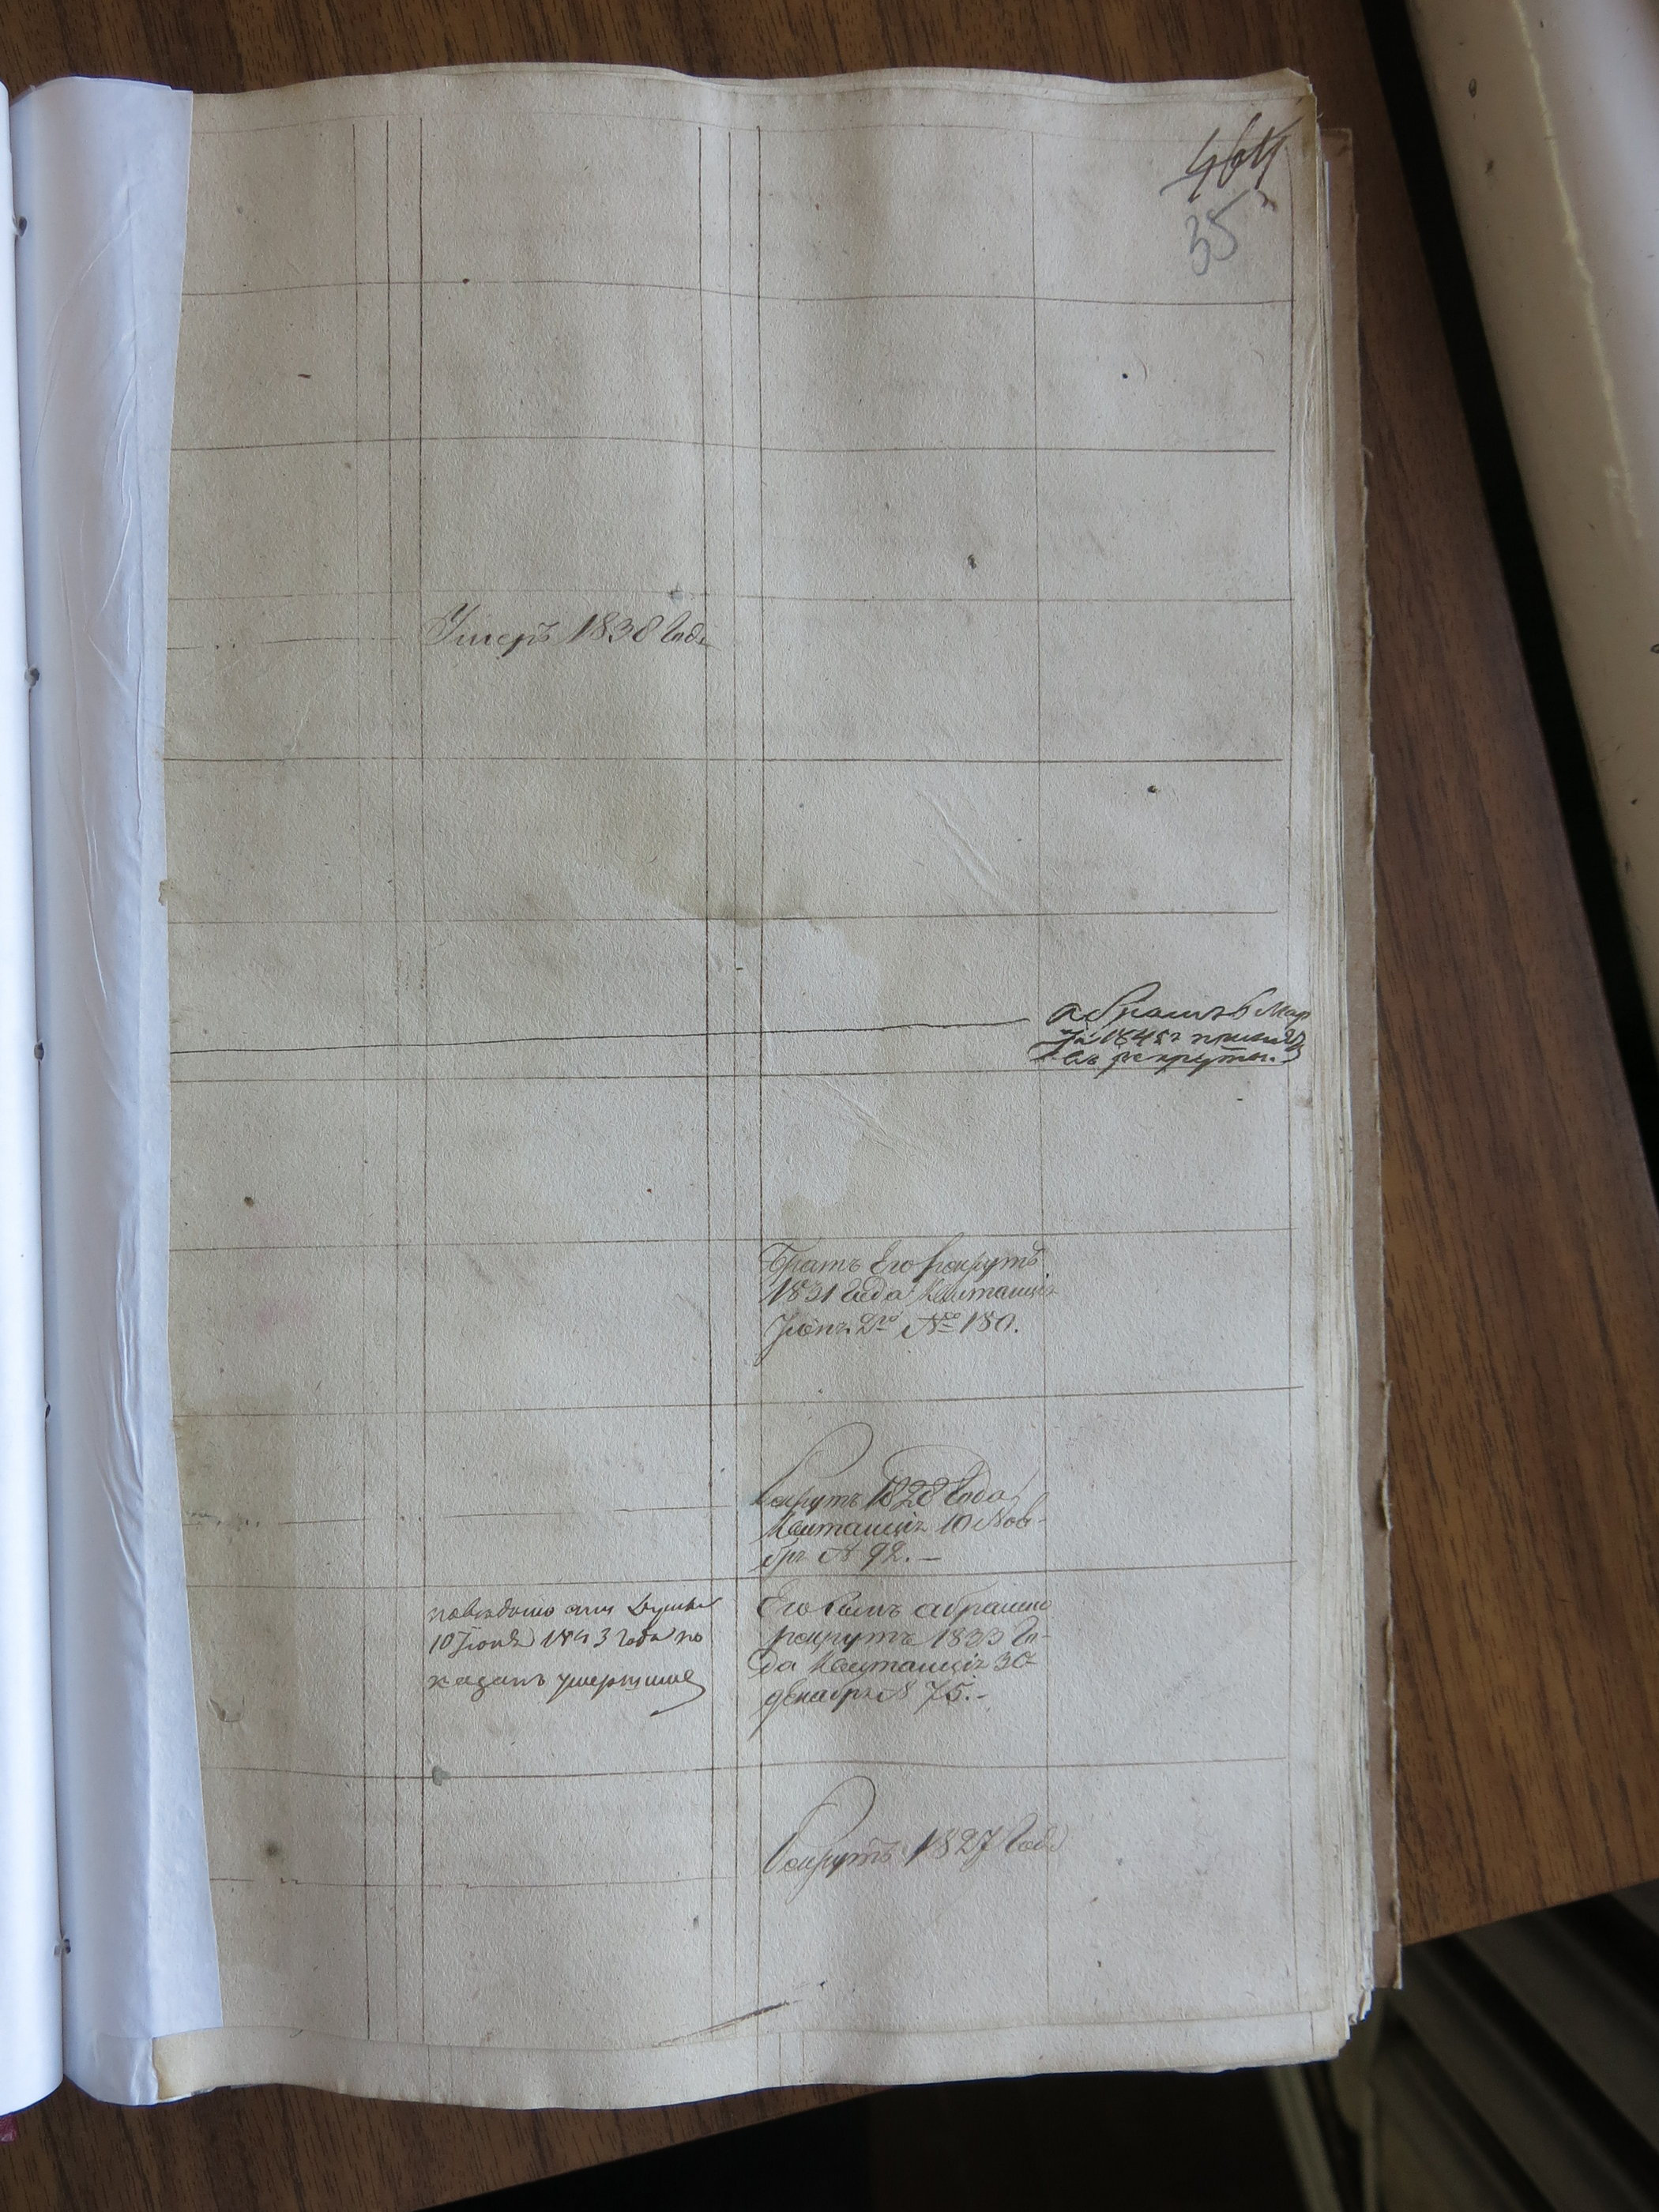 464
35
Умеръ 1838 Года
Абрамъ 6 Мар
та 1845 г принятъ
въ рекруты.
Братъ Его рекрутъ
1831 Года Квитанція
Іюня 2го № 180.
Рекрутъ 1828 Года
Квитанція 10 Нояб-
бря № 92. —
10 Іюня 1843 года по
казанъ умершимъ
Его Сынъ абрамъ
рекрутъ 1833 Го-
да Квитанція 30
декабря № 75. -
Рекрутъ 1827 Года